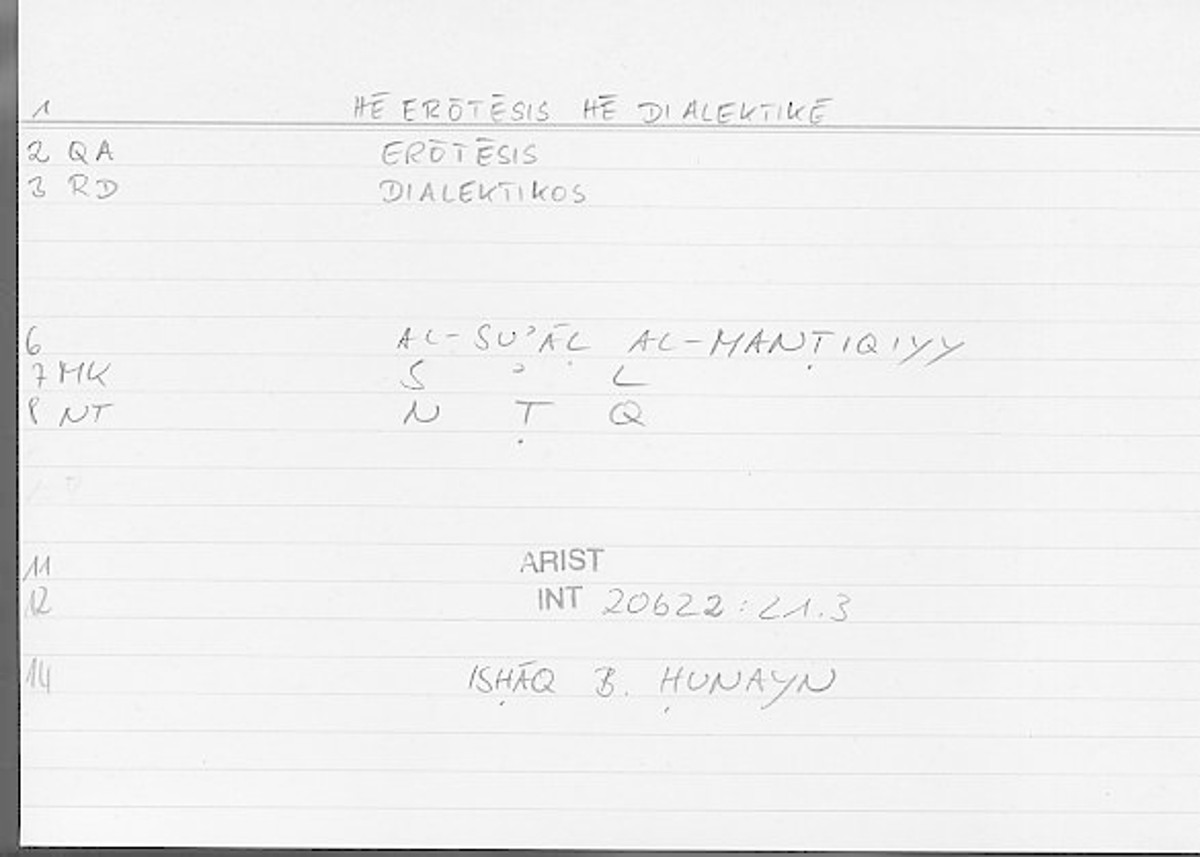 1 HĒ ERŌTĒSIS HĒ DIALEKTIKĒ
2 QA ERŌTĒSIS
3 RD DIALEKTIKOS
6 AL-SUʾĀL AL-MANṬIQIYY
7 MK S ʾ L
8 NT N Ṭ Q
11 ARIST
12 INT 20622:21.3
14 ISḤĀQ B. ḤUNAYN